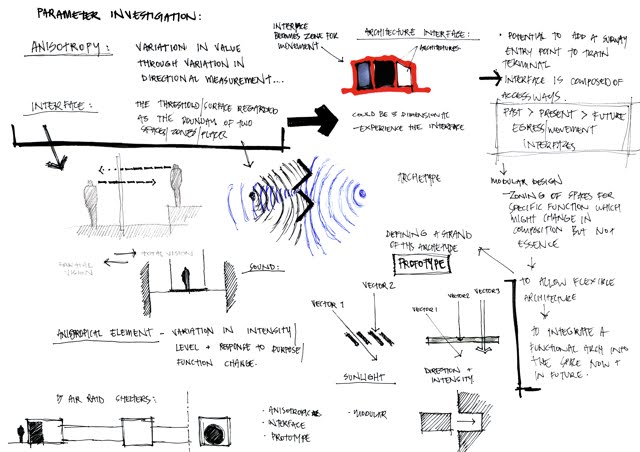 PARAMETER INVESTIGATION:
ANISOTROPY:
VARIATION IN VALUE
THROUGH VARIATION IN
DIRECTIONAL MEASUREMENT....
INTERFACE:
THE THRESHOLD/SURFACE REGARDED
AS THE BOUNDARY OF TWO
SPACES/ZONES/
INTERFACE
BECOMES ZONE FOR
MOVEMENT
ARCHITECTURE INTERFACE:
ARCHITECTURES
COULD BE 3 DIMENSIONAL
- EXPERIENCE THE INTERFACE
• POTENTIAL TO ADD A SUBWAY
ENTRY POINT TO TRAIN
TERMINAL
INTERFACE IS COMPOSED OF
ACCESSWAYS.
PAST > PRESENT > FUTURE
EGRESS/MOVEMENT
INTERFACES
MODULAR DESIGN
- ZONING OF SPACES FOR
SPECIFIC FUNCTION WHICH
MIGHT CHANGE IN
COMPOSITION BUT NOT
ESSENCE
TO ALLOW FLEXIBLE
ARCHITECTURE
TO INTEGRATE A
FUNCTIONAL ARCH INTO
THE SPACE NOW +
IN FUTURE.
ARCHETYPE
DEFINING A STRAND
OF THIS ARCHETYPE
PROTOTYPE
TOTAL VISION
VISION
SOUND:
ANISOTROPICAL ELEMENT - VARIATION IN INTENSITY/
LEVEL + RESPONSE TO PURPOSE/
FUNCTION CHANGE.
VECTOR 1
VECTOR 2
SUNLIGHT
VECTOR 1
VECTOR 2
VECTOR 3
DIRECTION +
INTENSITY.
AIR RAID SHELTERS:
• ANISOTROPICAL
• INTERFACE
• PROTOTYPE
• MODULAR